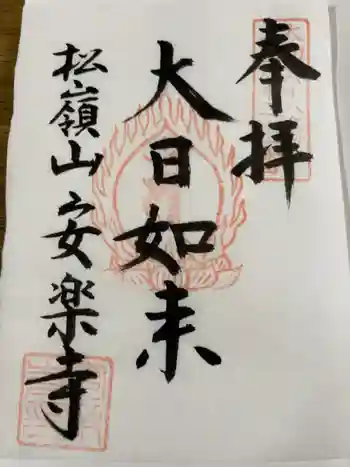 奉拝
大日如来
松嶺山安楽寺